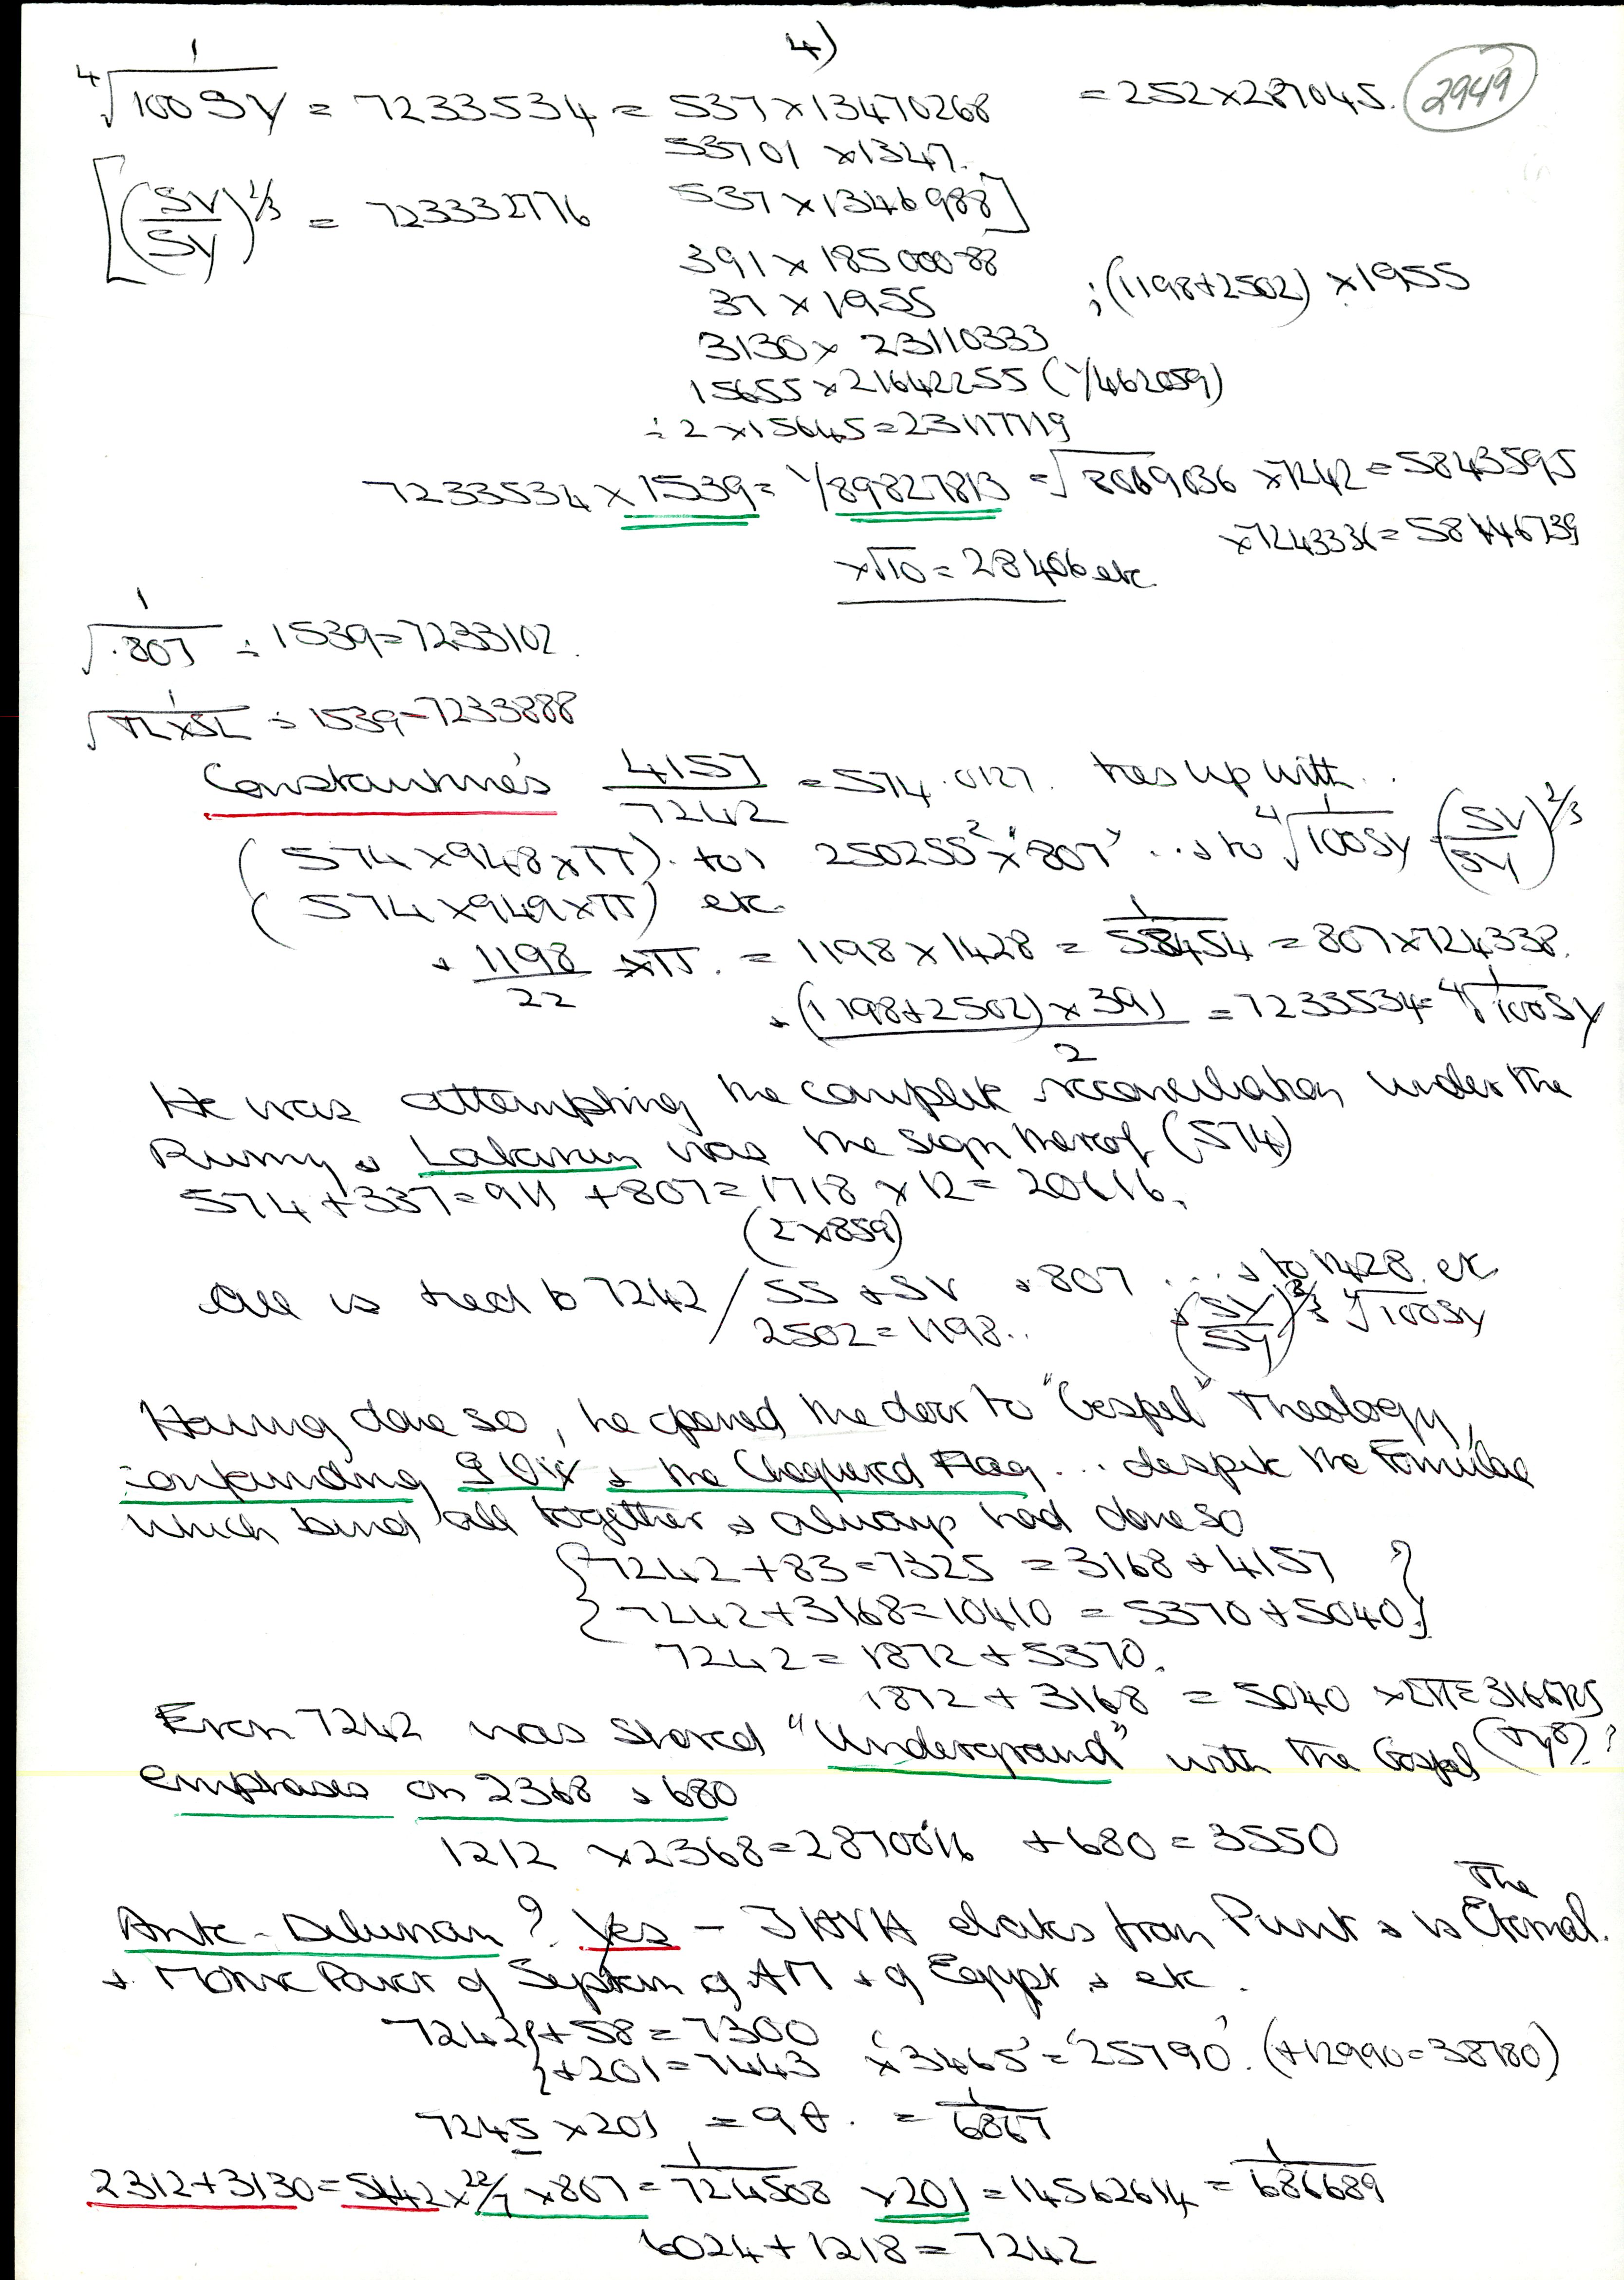 4)
⁴√(1/100SY) = 7233534 = 537 × 13470268 = 252 × 287045. 2949
53701 × 1347.
[(SV/SY)^2/3 = 723332776 537 × 1346988]
391 × 18500088
37 × 1955 ; (1198+2502) × 1955
3130 × 23110333
15655 × 21642255 (1/462059)
÷ 2 × 15645 = 23117719
7233534 × 1539 = 1/89827813 = √8069036 × 7242 = 5843595
× 724333 = 58446739
× √10 = 28406 etc.
1/√.807 ÷ 1539 = 7233102.
1/√TL×SL ÷ 1539 = 7233888
Constantine's 4157/7242 = 574.0127. ties up with..
(574 × 948 × π). to, 250255² × '807' .. & to ⁴√(1/100SY) (SV/SY)^2/3
(574 × 949 × π) etc.
& 1198/22 × π. = 1198 × 1428 = 1/58454 = 807 × 724338.
& (1198+2502) × 391/2 = 7233534 = ⁴√(1/100SY)
He was attempting the complete reconciliation under the
& was the sign thereof (574)
574 + 337 = 911 + 807 = 1718 × 12 = 20616.
(2 × 859)
All is tied to 7242 / SS & SV & 807 ... & to 1428. etc
2502 = 1198.. & (SV/SY)^2/3 ⁴√100SY
Having done so, he opened the door to "Gospel" Theology,
confounding & the Chequered Flag... despite the Formulae
which bind all together & always had done so
{7242 + 83 = 7325 = 3168 + 4157}
{7242 + 3168 = 10410 = 5370 + 5040}
7242 = 1872 + 5370.
1872 + 3168 = 5040 × 2π = 3166725
Even 7242 was stored "Underground" with the Gospel
emphases on 2368 & 680
1212 × 2368 = 2870016 + 680 = 3550
Ante-Deluvian? Yes – JAVA dates from Punt & is The Eternal.
& Power of System of AM & of Egypt & etc.
7242 {+ 58 = 7300
{+ 201 = 7443 × '3465' = '25790'. (+12990 = 38780)
7245 × 201 = 9θ. = 1/6867
2312 + 3130 = 5442 × 22/7 × 807 = 1/724508 × 201 = 14562614 = 1/686689
6024 + 1218 = 7242